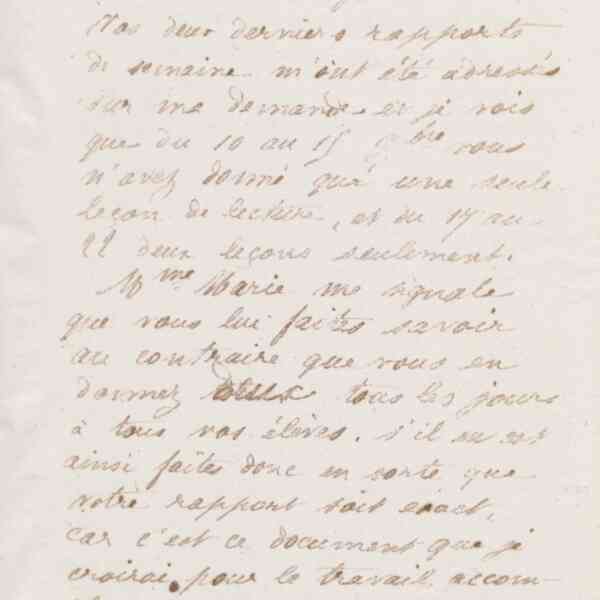 Vos deux derniers rapports
de semaine m'ont été adressés
sur ma demande et je vois
que du 10 au 15 9bre vous
n'avez donné qu'une seule
leçon de lecture, et du 17 au
22 deux leçons seulement.
Mme Marie me signale
que vous lui faites savoir
au contraire que vous en
donnez deux tous les jours
à tous vos élèves. S'il en est
ainsi faites donc en sorte que
votre rapport soit exact,
car c'est ce document que je
croirai pour le travail accom-